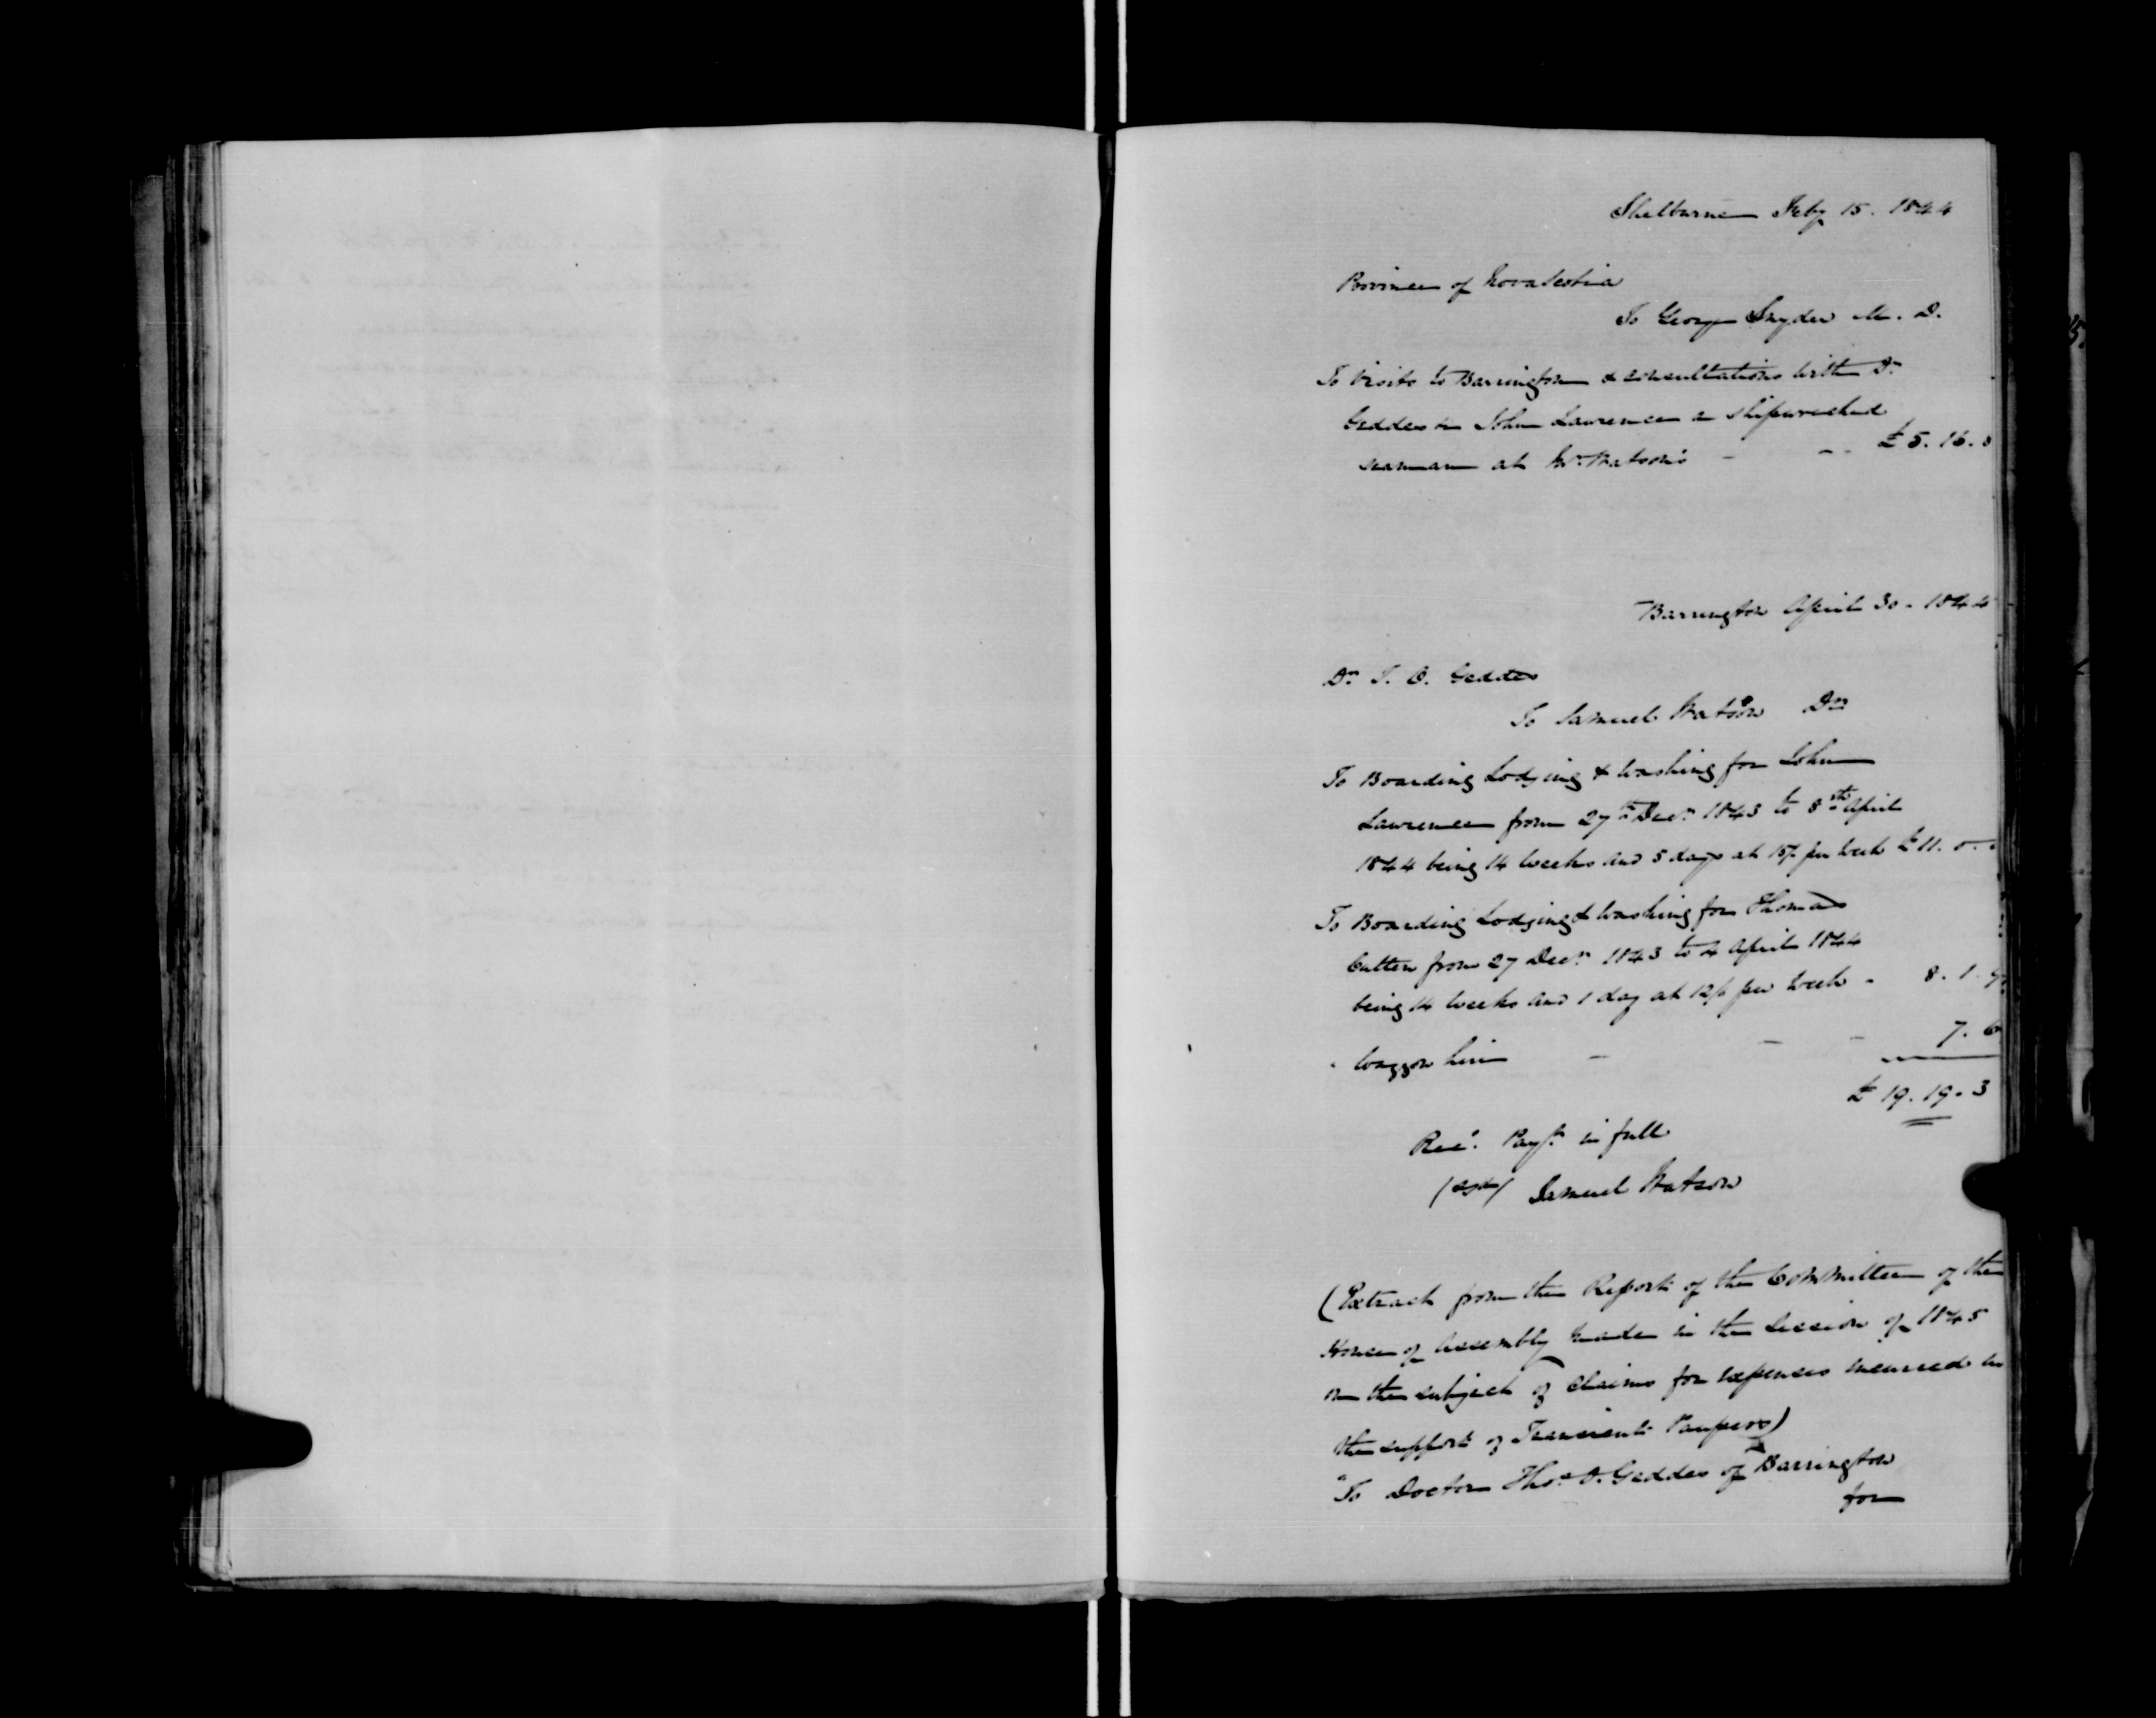 Shelburne Feby 15. 1844
Province of Nova Scotia
To George Snyder M. D.
To visits to Barrington & consultations with Dr.
Geddes on John Lawrence a shipwrecked
seaman at Mr. Watson's - - - £ 5. 16. 8
Barrington April 30. 1844
Dr. T. O. Geddes
To Samuel Watson Dr.
To Boarding Lodging & washing for John
Lawrence from 27th Decr. 1843 to 8th April
1844 being 14 weeks and 5 days at 15/ per week £ 11. 0.
To Boarding Lodging & washing for Thomas
Cutten from 27 Decr. 1843 to 4 April 1844
being 14 weeks and 1 day at 12/ per week - 8. 1. 9
" Waggon hire - - - 7. 6
£ 19. 19. 3
Recd. Payt. in full
(sgd) Samuel Watson
(Extract from the Report of the Committee of the
House of Assembly made in the Session of 1845
on the subject of Claims for expenses incurred in
the support of Transient Paupers)
"To Doctor Thos. O. Geddes of Barrington
for